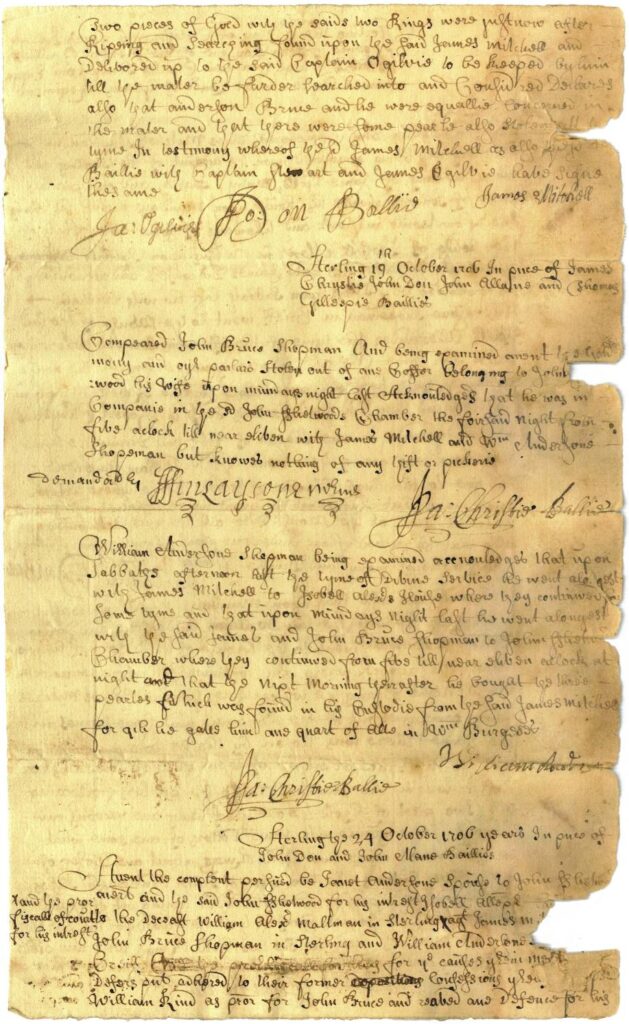 Two pieces of Gold with the saids two Rings were just now after
Ripeing and searching found upon the said James Mitchell and
Delivered up to the said Captain Ogilvie to be keeped by him
till the mater be furder searched into and Declares
also that anderson Bruce and he were equallie concerned in
the mater and that there were some pearle also
tyme In testimony whereof the sd James Mitchell as also
Baillie with Captain Stewart and James Ogilvie have signe
thir same
James Mitchell
Ja: Ogilvie Jo: Don Ballie
Sterling 19th October 1706 In pnce of James
Chrystie John Don John Allane and Thomas
Gillespie Baillies
Compeared John Bruce Shopman And being examined anent the
mony and oyr Stolen out of ane Coffer belonging to John
wood his wife upon mundays night last Acknowledges that he was in
Companie in the sd John Chamber the foirsaid night from
five aclock till near eliven with James Mitchell and Wm Anderson
Shopman but knowes nothing of any thift or pickerie
Ja: Christie Ballie
William Andersone Shopman being examined acknouledges that upon
Sabbaths afternoon last the tyme of Divine Service he went alongest
with James Mitchell to Isobell Alexrs House where they continowed
some tyme and that upon mundays night last he went alongest
with the said James and John Bruce Shopman to John
Chamber where they continwed from five till near eliven aclock at
night and that the nixt morning therafter he bought the three
pearles which was found in his Custodie from the said James Mitchell
for qch he gave him ane quart of Alle in Wm Burges's
Ja: Christie Ballie
Sterling the 24 October 1706 years In pnce of
John Don and John Allane Baillies
Anent the complent persued be Janet Andersone Spouse to John
and the said John for his intrest Isobell
and the pror
fiscall of court
for his intrest
the Deceast William Alexr Maltman in Sterling agt James
John Bruce Shopman in Sterling and William Andersone
for ye causes yrin
Defers but adhered to their former confessions yrin
William Kind as pror for John Bruce and Defence for him